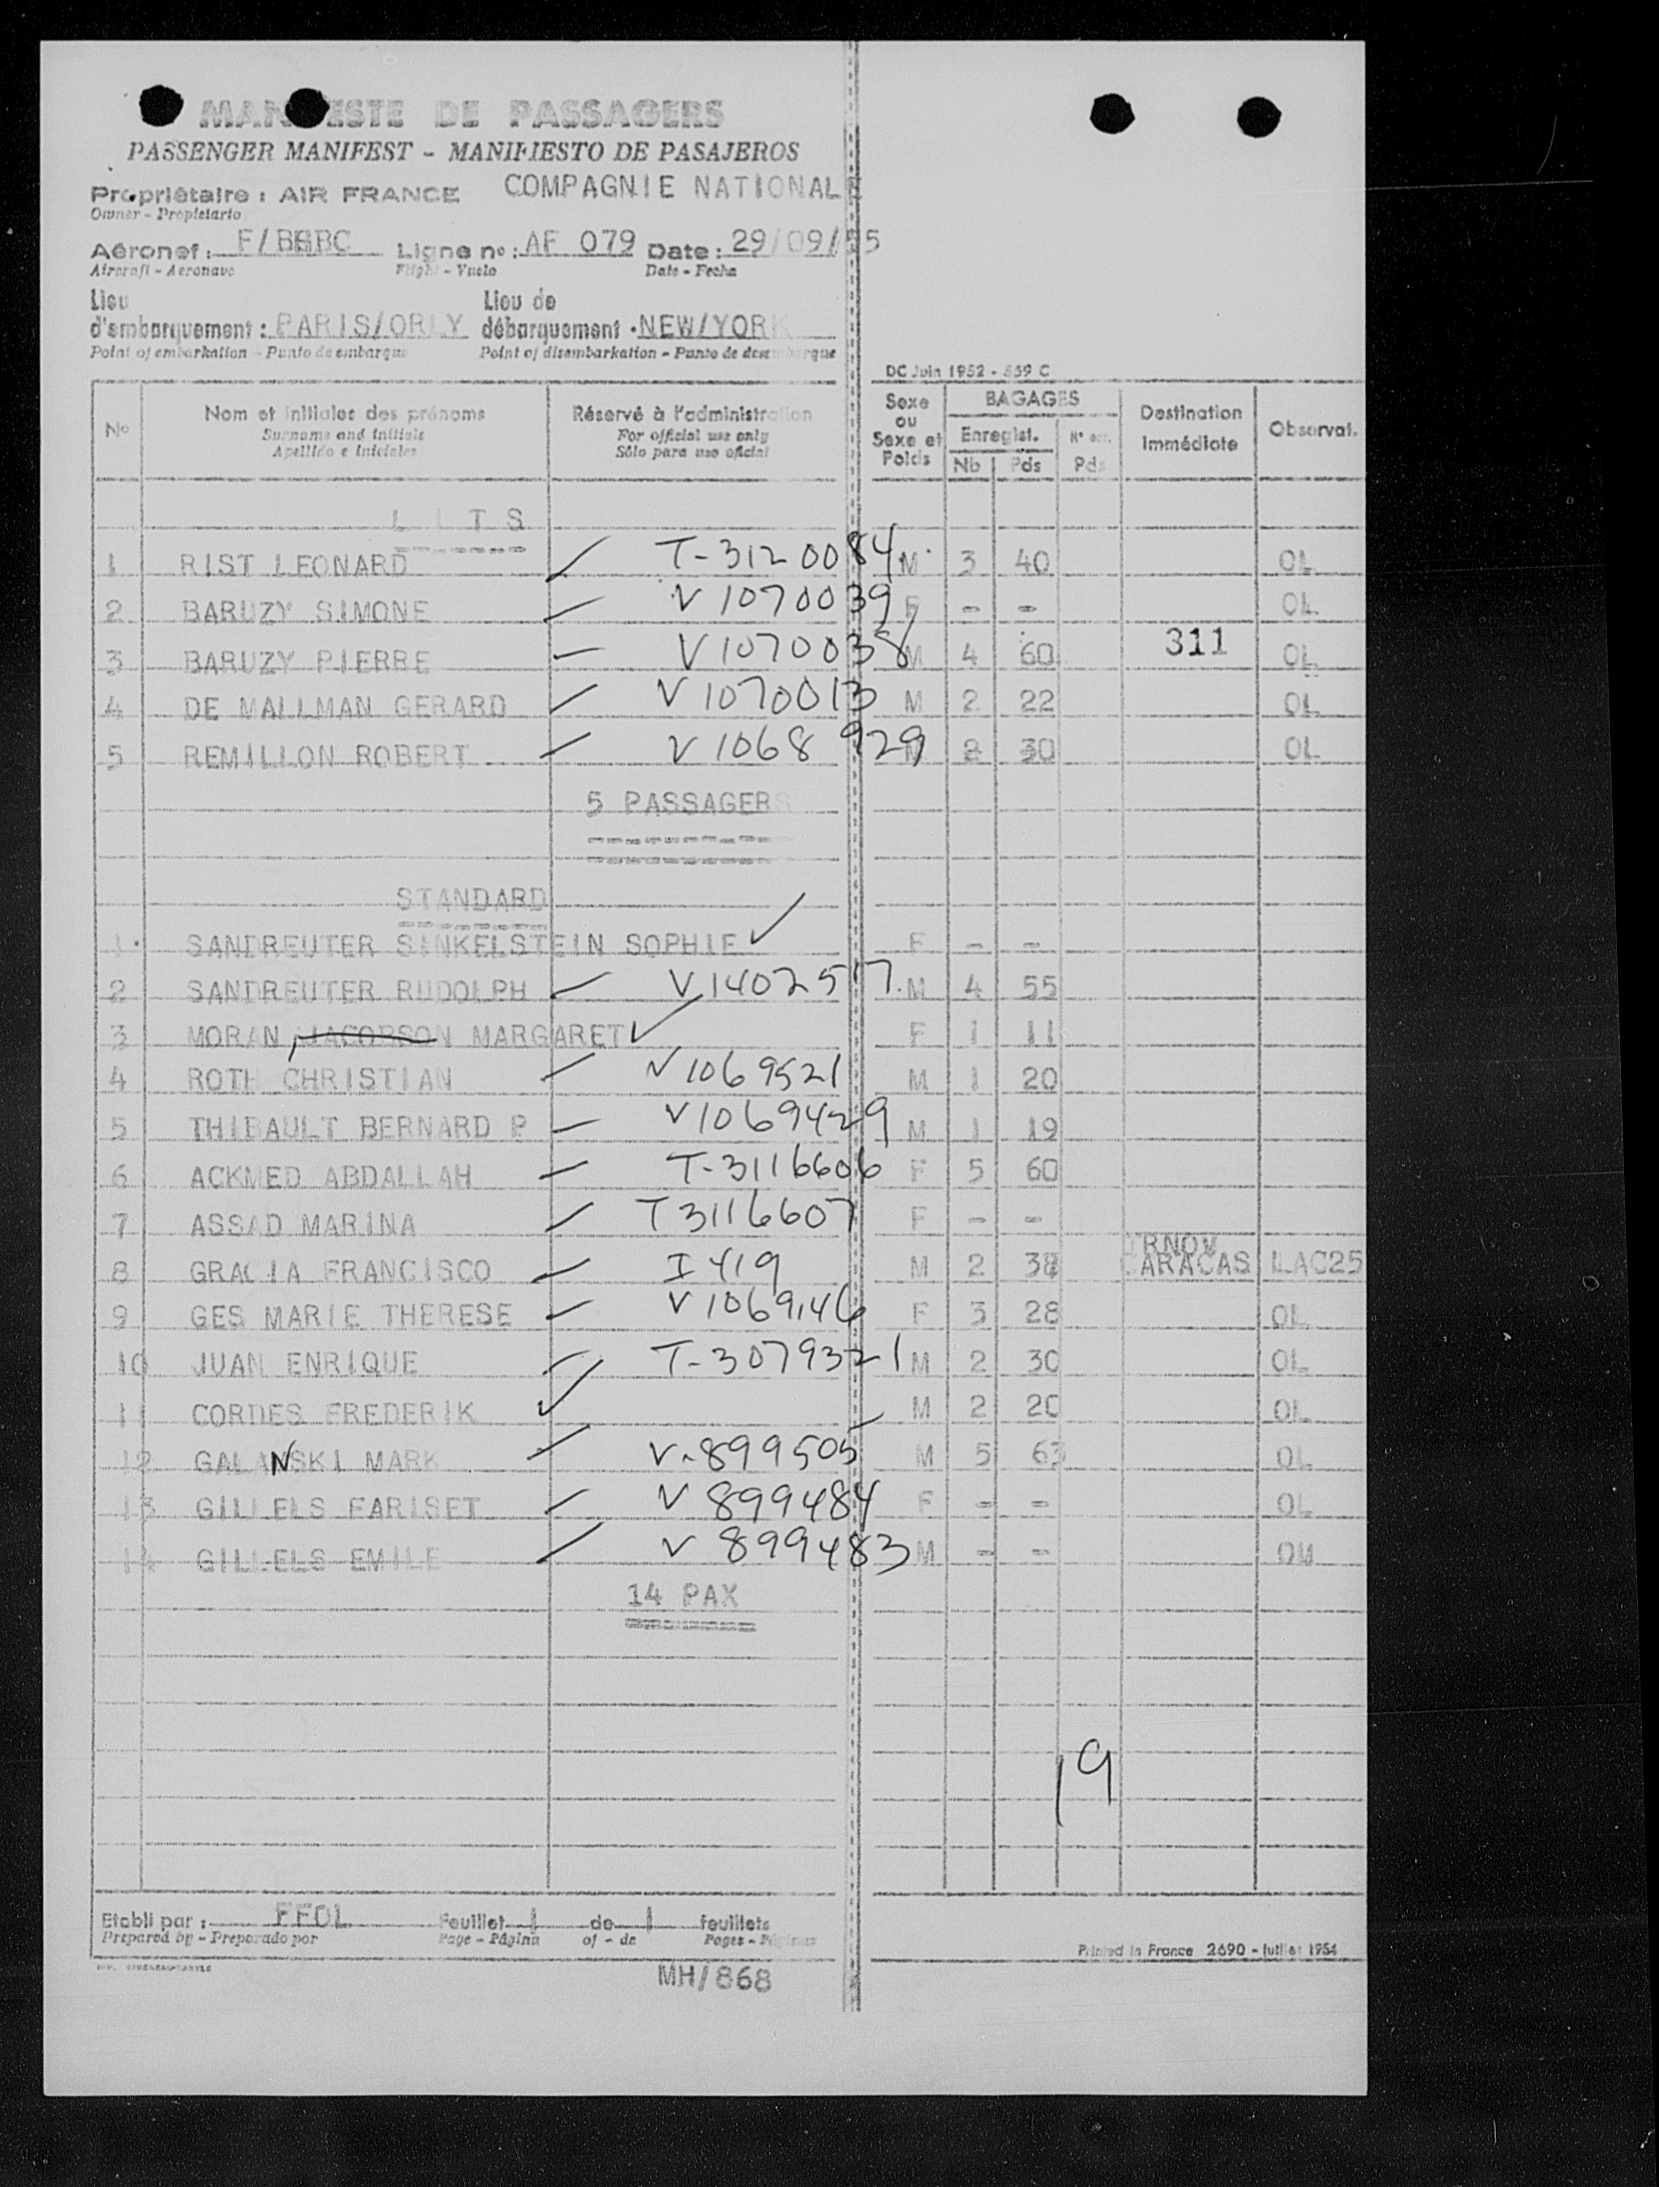 MANIFESTE DE PASSAGERS
PASSENGER MANIFEST - MANIFIESTO DE PASAJEROS
Propriétaire : AIR FRANCE COMPAGNIE NATIONALE
Owner - Propietario
Aéronef : F/BHBC Ligne n° : AF 079 Date : 29/09/55
Aircraft - Aeronave Flight - Vuelo Date - Fecha
Lieu d'embarquement : PARIS/ORLY Lieu de débarquement : NEW/YORK
Point of embarkation - Punto de embarque Point of disembarkation - Punto de desembarque
DC Juin 1952 - 559 C
N° Nom et initiales des prénoms Réservé à l'administration Sexe ou Sexe et Poids BAGAGES Destination Immédiate Observat.
Surname and initials For official use only Enregist.
Apellido e iniciales Sólo para uso oficial Nb Pds Pds
L I T S
1 RIST LEONARD T-3120084 M 3 40 OL
2 BARUZY SIMONE V 1070039 F - - OL
3 BARUZY PIERRE V 1070038 M 4 60 311 OL
4 DE MALLMAN GERARD V 1070013 M 2 22 OL
5 REMILLON ROBERT V 1068929 M 2 30 OL
5 PASSAGERS
STANDARD
1 SANDREUTER SINKELSTEIN SOPHIE F - -
2 SANDREUTER RUDOLPH V 1402517 M 4 55
3 MORAN, JACOBSON MARGARET F 1 11
4 ROTH CHRISTIAN V 1069521 M 1 20
5 THIBAULT BERNARD P V 1069429 M 1 19
6 ACKMED ABDALLAH T-3116606 F 5 60
7 ASSAD MARINA T 3116607 F - -
8 GRACIA FRANCISCO I 419 M 2 38 TRNOV CARACAS LAC25
9 GES MARIE THERESE V 1069146 F 3 28 OL
10 JUAN ENRIQUE T-3079321 M 2 30 OL
11 CORDES FREDERIK M 2 20 OL
12 GALANSKI MARK V-899505 M 5 63 OL
13 GILLELS FARISET V 899484 F - - OL
14 GILLELS EMILE V 899483 M - - OL
14 PAX
19
Etabli par : FFOL Feuillet 1 de 1 feuillets
Prepared by - Preparado por Page - Página of - de Pages - Páginas
Printed in France 2690 - Juillet 1954
MH/868